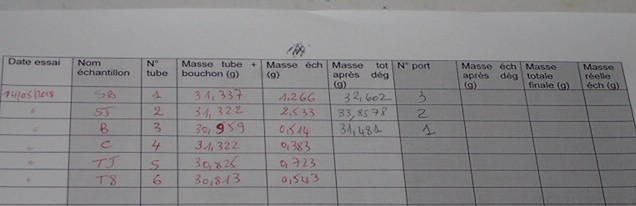 Date essai | Nom échantillon | N° tube | Masse tube + bouchon (g) | Masse éch (g) | Masse tot après dég (g) | N° port | Masse éch après dég (g) | Masse totale finale (g) | Masse réelle éch (g)
14/05/2018 | SB | 1 | 31,337 | 1,266 | 32,602 | 3
" | SJ | 2 | 31,322 | 2,533 | 33,8578 | 2
" | B | 3 | 30,959 | 0,514 | 31,481 | 1
" | C | 4 | 31,322 | 0,383
" | TJ | 5 | 30,826 | 0,723
" | T8 | 6 | 30,813 | 0,543